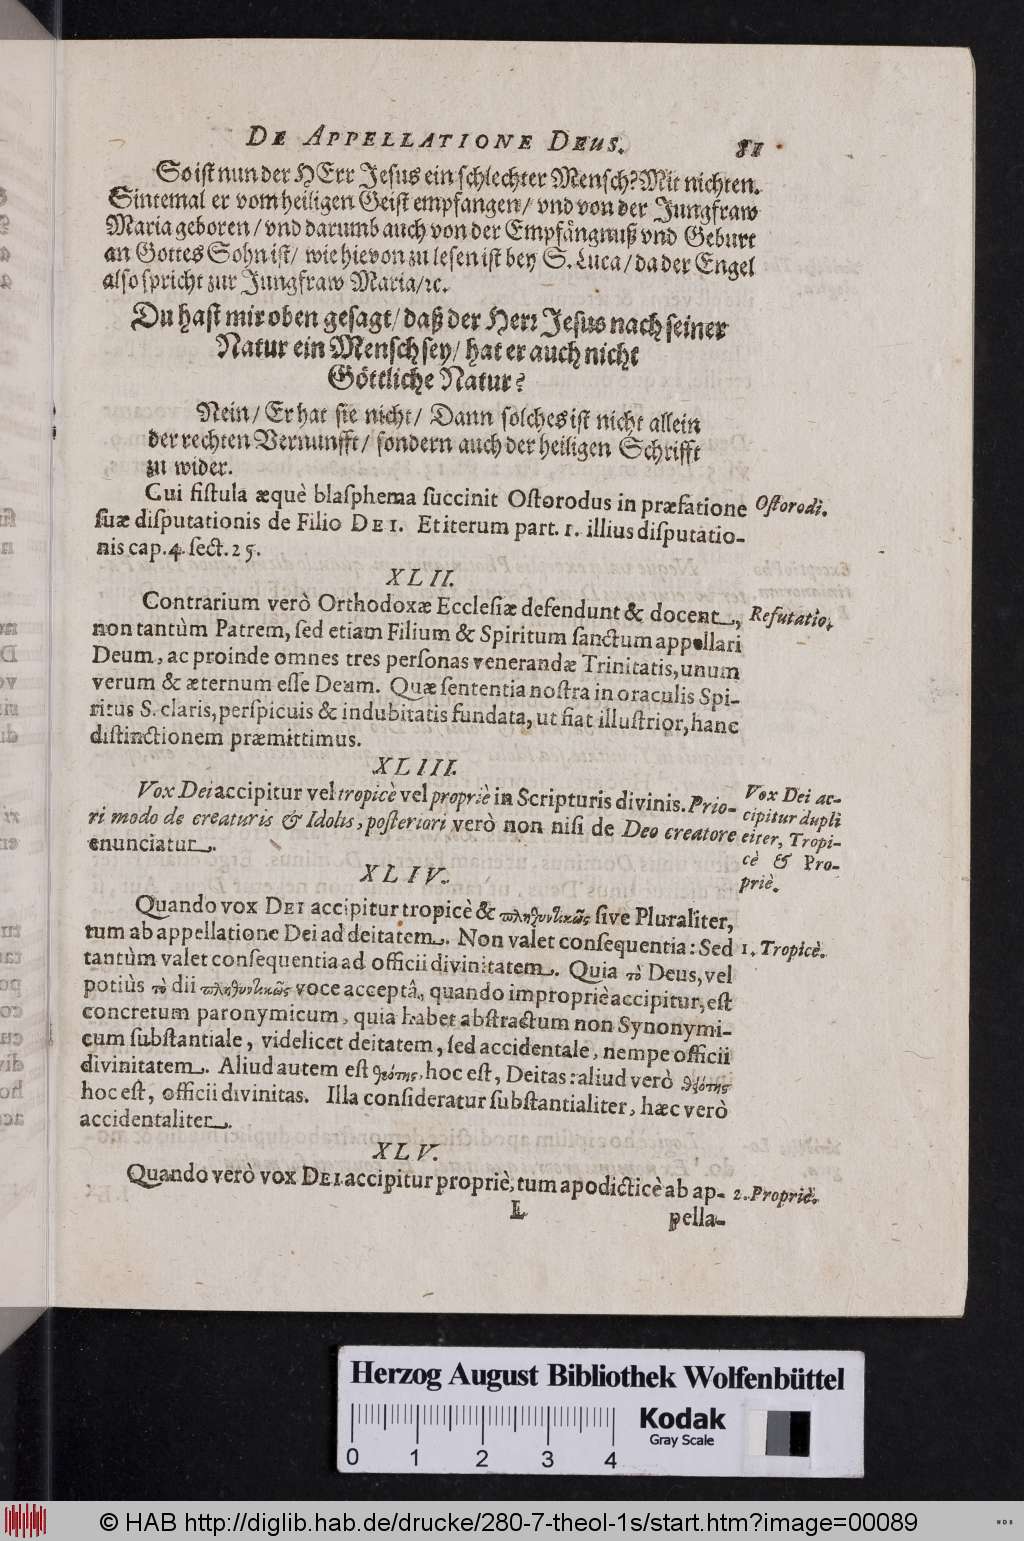 DE APPELLATIONE DEUS. 81
So ist nun der HErr Jesus ein schlechter Mensch? Mit nichten.
Sintemal er vom heiligen Geist empfangen/ vnd von der Jungfraw
Maria geboren/ vnd darumb auch von der Empfängnuß vnd Geburt
an Gottes Sohn ist/ wie hievon zu lesen ist bey S. Luca/ da der Engel
also spricht zur Jungfraw Maria/ꝛc.
Du hast mir oben gesagt/ daß der Herꝛ Jesus nach seiner
Natur ein Mensch sey/ hat er auch nicht
Göttliche Natur?
Nein/ Er hat sie nicht/ Dann solches ist nicht allein
der rechten Vernunfft/ sondern auch der heiligen Schrifft
zu wider.
Cui fistula æquè blasphema succinit Ostorodus in præfatione
suæ disputationis de Filio DEI. Et iterum part. 1. illius disputatio-
nis cap. 4. sect. 25.
Ostorodi.
XLII.
Contrarium verò Orthodoxæ Ecclesiæ defendunt & docent,
non tantùm Patrem, sed etiam Filium & Spiritum sanctum appellari
Deum, ac proinde omnes tres personas venerandæ Trinitatis, unum
verum & æternum esse Deum. Quæ sententia nostra in oraculis Spi-
ritus S. claris, perspicuis & indubitatis fundata, ut fiat illustrior, hanc
distinctionem præmittimus.
Refutatio.
XLIII.
Vox Dei accipitur vel tropicè vel propriè in Scripturis divinis. Prio-
ri modo de creaturis & Idolis, posteriori verò non nisi de Deo creatore
enunciatur.
Vox Dei ac-
cipitur dupli
citer, Tropi-
cè & Pro-
priè.
XLIV.
Quando vox DEI accipitur tropicè & πληθυντικῶς sive Pluraliter,
tum ab appellatione Dei ad deitatem. Non valet consequentia: Sed
tantùm valet consequentia ad officii divinitatem. Quia τὸ Deus, vel
potiùs τὸ dii πληθυντικῶς voce acceptâ, quando impropriè accipitur, est
concretum paronymicum, quia habet abstractum non Synonymi-
cum substantiale, videlicet deitatem, sed accidentale, nempe officii
divinitatem. Aliud autem est θεότης, hoc est, Deitas: aliud verò θειότης
hoc est, officii divinitas. Illa consideratur substantialiter, hæc verò
accidentaliter.
1. Tropicè.
XLV.
Quando verò vox DEI accipitur propriè, tum apodicticè ab ap-
2. Propriè.
L
pella-
Herzog August Bibliothek Wolfenbüttel
0 1 2 3 4
Kodak
Gray Scale
© HAB http://diglib.hab.de/drucke/280-7-theol-1s/start.htm?image=00089